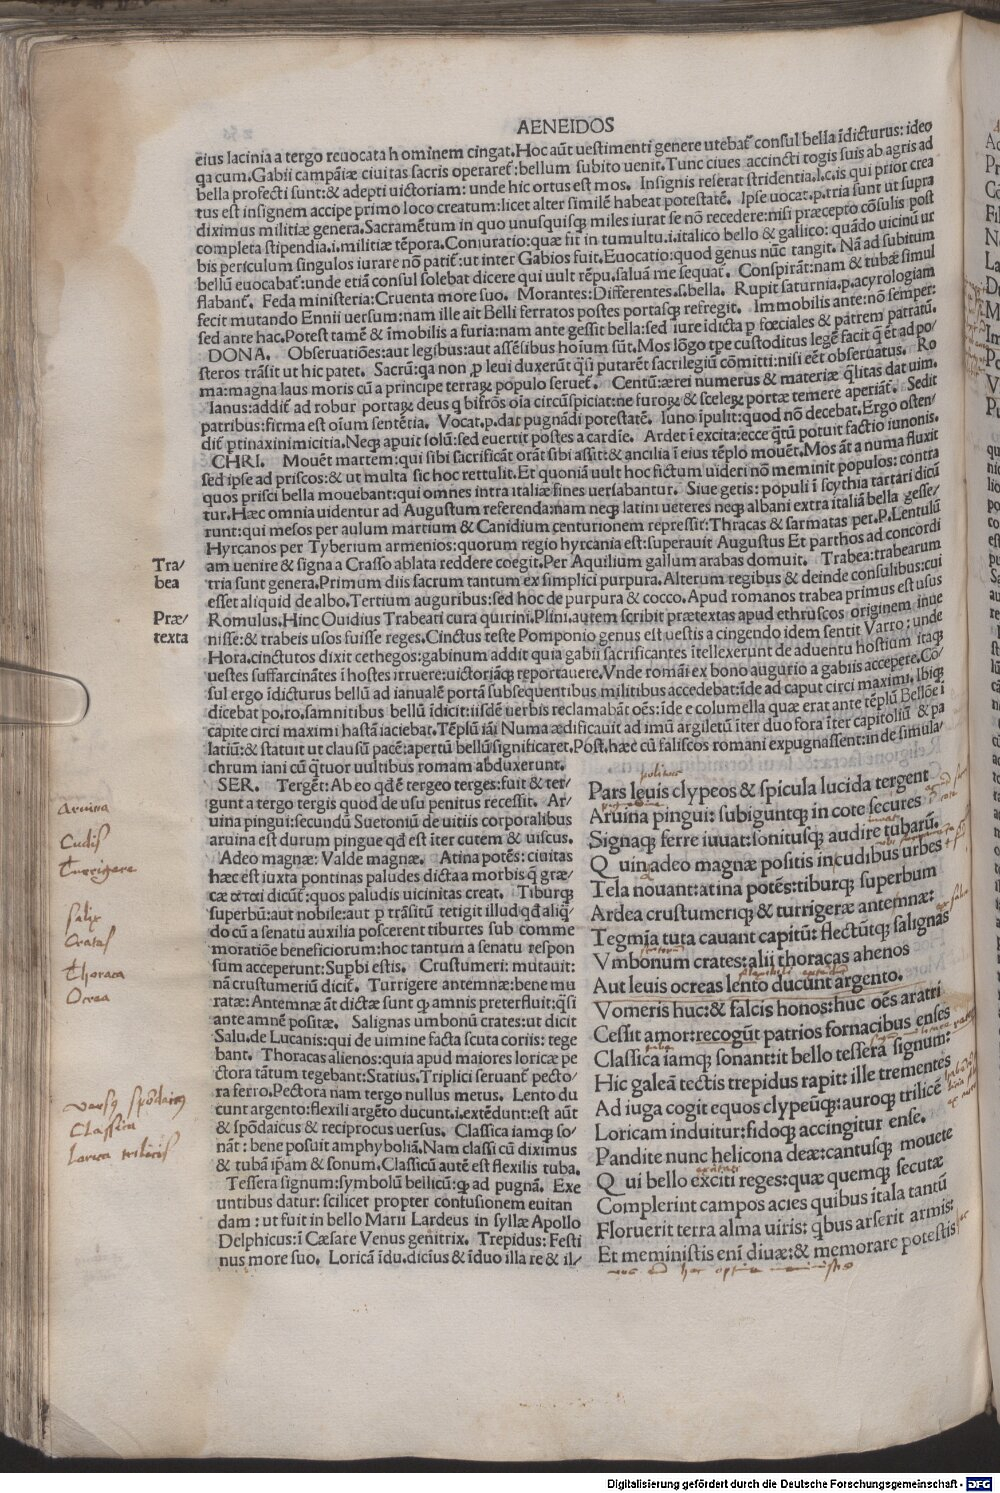 AENEIDOS
eius lacinia a tergo reuocata hominem cingat.Hoc aũt uestimenti genere utebat᷑ consul bella ĩdicturus: ideo
qa cum.Gabii campãiæ ciuitas sacris operaret᷑:bellum subito uenit.Tunc ciues accincti togis suis ab agris ad
bella profecti sunt:& adepti uictoriam: unde hic ortus est mos. Insignis reserat stridentia.l.c.is qui prior crea
tus est insignem accipe primo loco creatum:licet alter similẽ habeat potestatẽ. Ipse uocat.p.tria sunt ut supra
diximus militiæ genera.Sacramẽtum in quo unusquisqꝫ miles iurat se nõ recedere:nisi præcepto cõsulis post
completa stipendia.i.militiæ tẽpora.Coniuratio:quæ fit in tumultu.i.italico bello & gallico: quãdo uicinũ ur
bis periculum singulos iurare nõ patit᷑:ut inter Gabios fuit.Euocatio:quod genus nũc tangit. Nã ad subitum
bellũ euocabat᷑:unde etiã consul solebat dicere qui uult rẽpu.saluã me sequat᷑. Conspirãt:nam & tubæ simul
flabant᷑. Feda ministeria:Cruenta more suo. Morantes:Differentes.s.bella. Rupit saturnia.p.acyrologiam
fecit mutando Ennii uersum:nam ille ait Belli ferratos postes portasqꝫ refregit. Immobilis ante:nõ semper:
sed ante hac.Potest tamẽ & ĩmobilis a furia:nam ante gessit bella:sed iure idicta p fœciales & patrem patratũ.
DONA. Obseruatiões:aut legibus:aut assẽsibus hoium sũt.Mos lõgo tpe custoditus legẽ facit q̃ ẽt ad po/
steros trãsit ut hic patet. Sacrũ:qa non ꝓ leui duxerũt q̃si putarẽt sacrilegiũ cõmitti:nisi eẽt obseruatus. Ro
ma:magna laus moris cũ a principe terraꝝ populo seruet᷑. Centũ:ærei numerus & materiæ q̃litas dat uim.
Ianus:addit᷑ ad robur portaꝝ deus q bifrõs oia circũspiciat:ne furoꝝ & sceleꝝ portæ temere aperiãt᷑. Sedit
patribus:firma est oium sentẽtia. Vocat.p.dat pugnãdi potestatẽ. Iuno ipulit:quod nõ decebat.Ergo osten/
dit᷑ ptinax inimicitia.Neqꝫ apuit solũ:sed euertit postes a cardie. Ardet ĩ excita:ecce q̃tũ potuit factio iunonis.
CHRI. Mouẽt martem:qui sibi sacrificãt orãt sibi assit:& ancilia ĩ eius tẽplo mouẽt.Mos ãt a numa fluxit
sed ipse ad priscos:& ut multa sic hoc rettulit.Et quoniã uult hoc fictum uideri nõ meminit populos: contra
quos prisci bella mouebant:qui omnes intra italiæ fines uersabantur. Siue getis: populi ĩ scythia tartari dicũ
tur.Hæc omnia uidentur ad Augustum referenda:nam neqꝫ latini ueteres neqꝫ albani extra italiã bella gesse/
runt:qui mesos per aulum martium & Canidium centurionem repressit:Thracas & sarmatas per.P.Lentulũ
Hyrcanos per Tyberium armenios:quorum regio hyrcania est:superauit Augustus Et parthos ad concordi
am uenire & signa a Crasso ablata reddere coegit.Per Aquilium gallum arabas domuit. Trabea:trabearum
tria sunt genera.Primum diis sacrum tantum ex simplici purpura.Alterum regibus & deinde consulibus:cui
esset aliquid de albo.Tertium auguribus:sed hoc de purpura & cocco.Apud romanos trabea primus est usus
Romulus.Hinc Ouidius Trabeati cura quirini.Plini.autem scribit prætextas apud ethruscos originem inue
nisse:& trabeis usos fuisse reges.Cinctus teste Pomponio genus est uestis a cingendo idem sentit Varro: unde
Hora.cinctutos dixit cethegos:gabinum addit quia gabii sacrificantes itellexerunt de aduentu hostium itaqꝫ
uestes suffarcinãtes ĩ hostes irruere:uictoriãqꝫ reportauere.Vnde romãi ex bono augurio a gabiis accepere.Cõ/
sul ergo ĩdicturus bellũ ad ianualẽ portã subsequentibus militibus accedebat:ĩde ad caput circi maximi.Ibiqꝫ
dicebat po.ro.samnitibus bellũ ĩdicit:iisdẽ uerbis reclamabãt oẽs:ĩde e columella quæ erat ante tẽplũ Bellõe ĩ
capite circi maximi hastã iaciebat.Tẽplũ iãi Numa ædificauit ad imũ argiletũ ĩter duo fora ĩter capitoliũ & pa
latiũ:& statuit ut clausũ pacẽ:apertũ bellũ significaret.Post hæc cũ faliscos romani expugnassent:inde simula/
chrum iani cũ q̃tuor uultibus romam abduxerunt.
Tra/
bea
Præ/
texta
SER. Tergẽt:Ab eo qđ ẽ tergeo terges:fuit & ter/
gunt a tergo tergis quod de usu penitus recessit. Ar/
uina pingui:secundũ Suetoniũ de uitiis corporalibus
aruina est durum pingue qđ est iter cutem & uiscus.
Adeo magnæ: Valde magnæ. Atina potẽs: ciuitas
hæc est iuxta pontinas paludes dicta a morbis q̃ græ/
cæ ατται dicũt᷑:quos paludis uicinitas creat. Tiburqꝫ
superbũ:aut nobile:aut p trãsitũ tetigit illud qđ aliq̃/
do cũ a senatu auxilia poscerent tiburtes sub comme
moratiõe beneficiorum:hoc tantum a senatu respon
sum acceperunt:Supbi estis. Crustumeri: mutauit:
nã crustumeriũ dicit᷑. Turrigere antemnæ:bene mu
ratæ: Antemnæ ãt dictæ sunt qꝫ amnis preterfluit:q̃si
ante amnẽ positæ. Salignas umbonũ crates:ut dicit
Salu.de Lucanis:qui de uimine facta scuta coriis: tege
bant. Thoracas alienos:quia apud maiores loricæ pe
ctora tãtum tegebant:Statius.Triplici seruant᷑ pecto/
ra ferro.Pectora nam tergo nullus metus. Lento du
cunt argento:flexili argẽto ducunt.i.extẽdunt:est aũt
& spõdaicus & reciprocus uersus. Classica iamqꝫ so/
nãt: bene posuit amphyboliã.Nam classi cũ diximus
& tubã ipam & sonum.Classicũ autẽ est flexilis tuba.
Tessera signum:symbolũ bellicũ:qꝫ ad pugnã. Exe
untibus datur: scilicet propter confusionem euitan
dam: ut fuit in bello Marii Lardeus in syllæ Apollo
Delphicus:ĩ Cæsare Venus genitrix. Trepidus: Festi
nus more suo. Loricã ĩdu.dicius & ĩduo illa re & il/
Pars leuis clypeos & spicula lucida tergent
Aruina pingui: subiguntqꝫ in cote secures
Signaqꝫ ferre iuuat:sonitusqꝫ audire tubarũ.
Q uin adeo magnæ positis incudibus urbes
Tela nouant:atina potẽs:tiburqꝫ superbum
Ardea crustumeriqꝫ & turrigeræ antemnæ:
Tegmia tuta cauant capitũ: flectũtqꝫ salignas
Vmbonum crates:alij thoraças ahenos
Aut leuis ocreas lento ducunt argento.
Vomeris huc:& falcis honos:huc oẽs aratri
Cessit amor:recogũt patrios fornacibus enses
Classica iamqꝫ sonant:it bello tessera signum:
Hic galeã tectis trepidus rapit: ille trementes
Ad iuga cogit equos clypeũqꝫ:auroqꝫ trilicẽ
Loricam induitur:fidoqꝫ accingitur ense.
Pandite nunc helicona deæ:cantusqꝫ mouete
Q ui bello exciti reges:quæ quemqꝫ secutæ
Complerint campos acies quibus itala tantũ
Floruerit terra alma uiris: qbus arserit armis:
Et meministis eni diuæ:& memorare potestis
Aruina
Cudis
Turrigere
salix
Crates
Thoraca
Ocrea
versus spõdaicus
Classica
Lorica trilicis
Digitalisierung gefördert durch die Deutsche Forschungsgemeinschaft - DFG